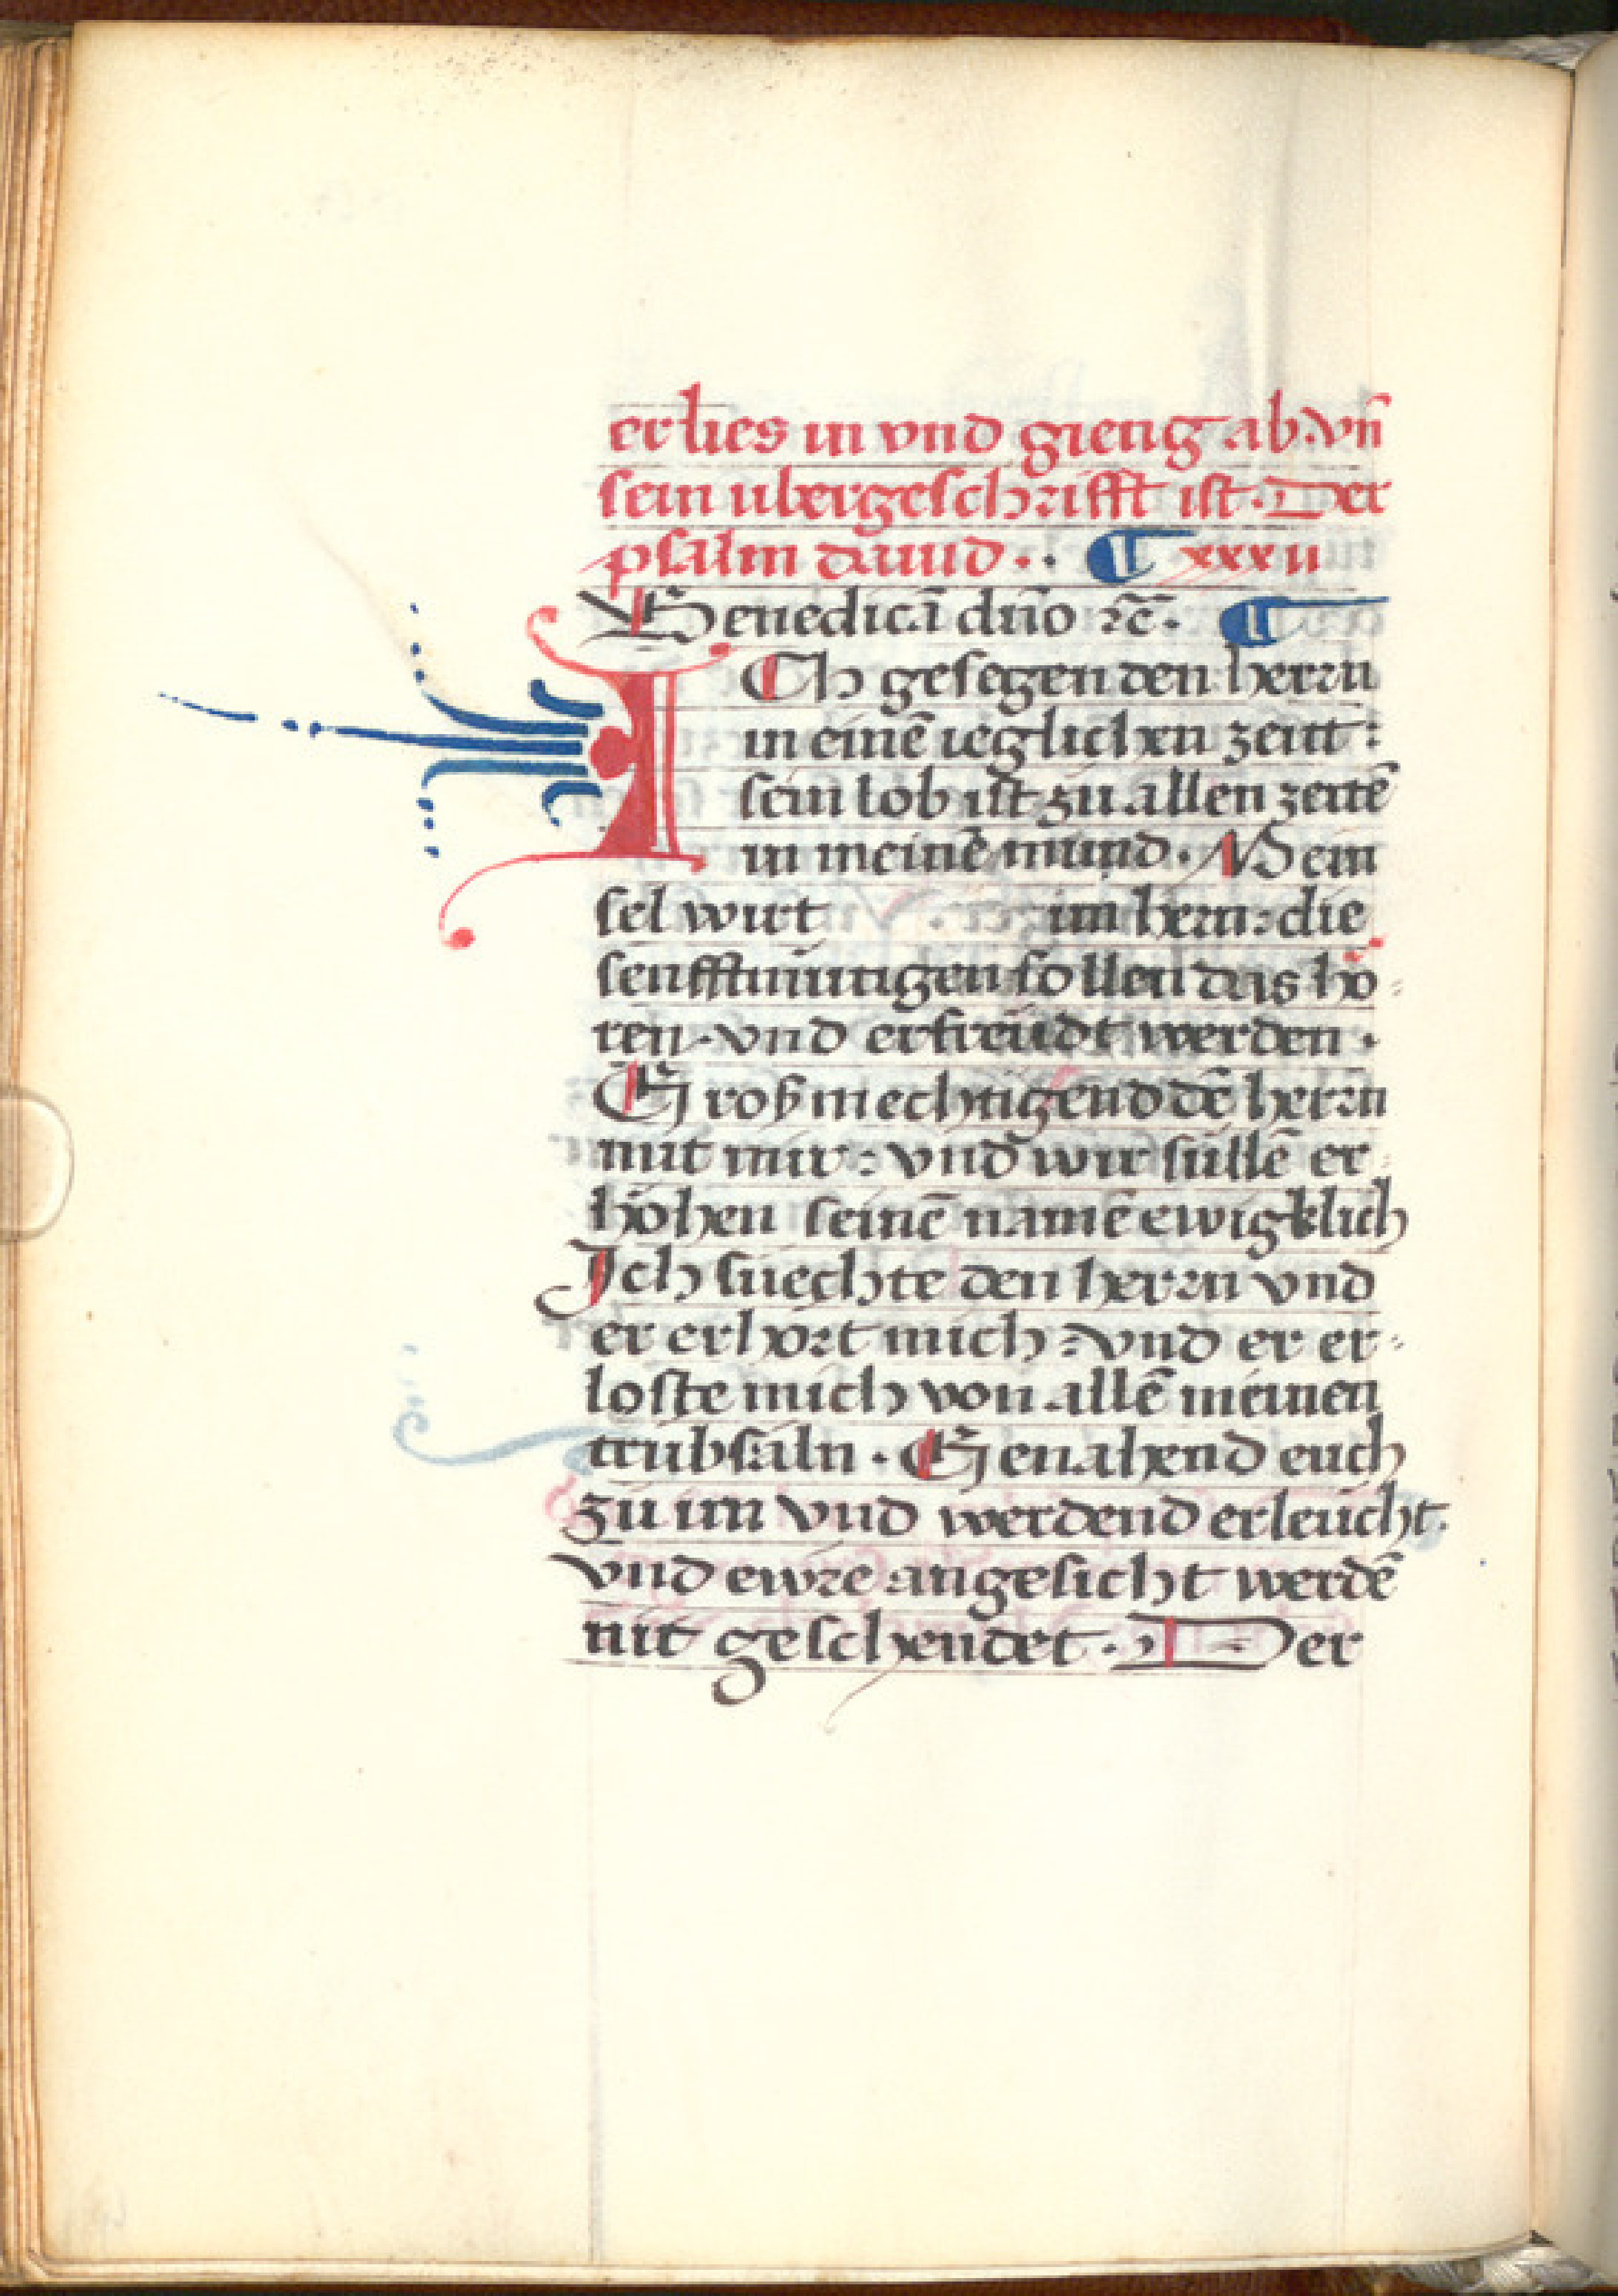 er lies in vnd gieng ab. vn̄
sein ubergeschrifft ist. Der
psalm dauid. . ¶ xxxii
Benedicā dn̄o ꝛc̄. ¶
ICh gesegen den herrn
in einē ieglichen zeitt:
sein lob ist zu allen zeitē
in meinē mund. Mein
sel wirt im hern: die
senfftmutigen sollen das hö-
ren. vnd erfreüdt werden.
Großmechtigend dē herrn
mit mir: vnd wir süllē er-
höhen seinē namē ewigklich
Ich suechte den herrn vnd
er erhort mich: vnd er er-
loste mich von allē meinen
trübsaln. Genahend euch
zu im vnd werdend erleücht.
vnd ewre angesicht werdē
nit geschendet. Der